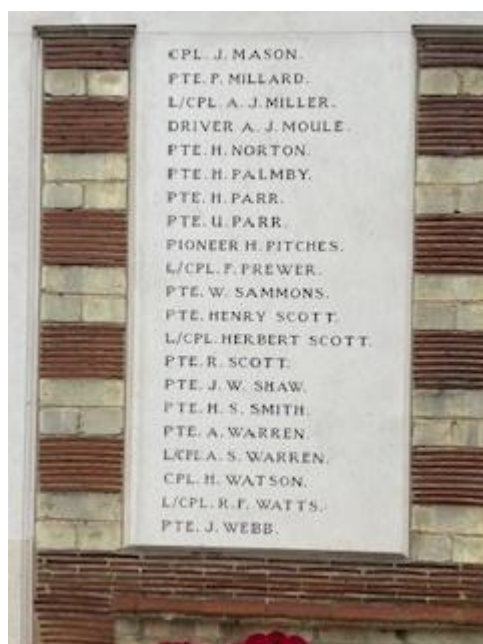 CPL. J. MASON.
PTE. P. MILLARD.
L/CPL. A. J. MILLER.
DRIVER A. J. MOULE.
PTE. H. NORTON.
PTE. H. PALMBY.
PTE. H. PARR.
PTE. U. PARR.
PIONEER H. PITCHES.
L/CPL. F. PREWER.
PTE. W. SAMMONS.
PTE. HENRY SCOTT.
L/CPL. HERBERT SCOTT.
PTE. R. SCOTT.
PTE. J. W. SHAW.
PTE. H. S. SMITH.
PTE. A. WARREN.
L/CPL A. S. WARREN.
CPL. H. WATSON.
L/CPL. R. F. WATTS.
PTE. J. WEBB.